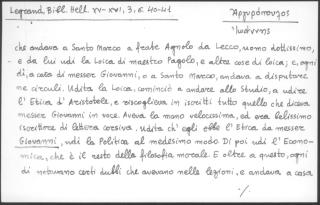 Legrand, Bibl. Hell. XV-XVI, 3, σ. 40-41
Ἀργυρόπουλος
Ἰωάννης
che andava a Santo Marco a frate Agnolo da Lecco, uomo dottissimo,
e da lui udì la Loica di maestro Pagolo, e altre cose di loica; e, ogni
dì, a casa di messer Giovanni, o a Santo Marco, andava a disputare
ne circuli. Udita la Loica, cominciò a andare allo Studio, a udire
l'Etica d'Aristotele, e riscoglieva in iscritti tutto quello che diceva
messer Giovanni in voce. Aveva la mano velocissima, ed era bellissimo
iscrittore di lettera corsiva. Udita ch' egli ebbe l'Etica da messer
Giovanni, udì la Politica al medesimo modo. Di poi udì l'Econo-
mica, che è il resto della filosofia morale. E oltre a questo, ogni
dì notavano certi dubbi che avevano nelle lezioni, e andava a casa
./.